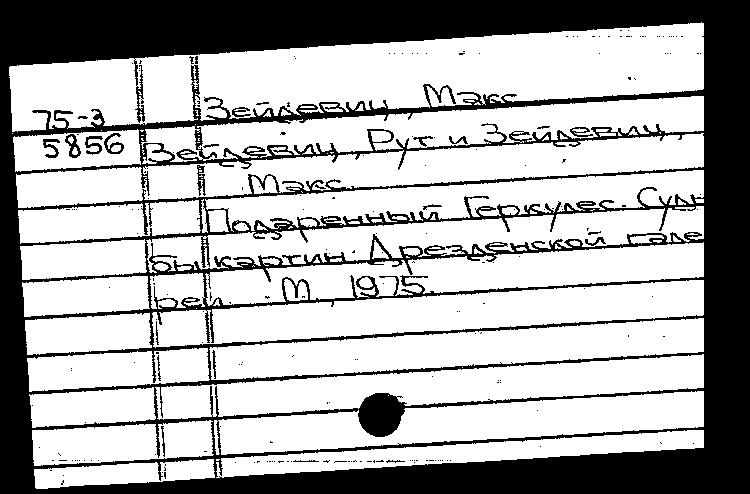 75-3
Зейдевиц, Макс
5856
Зейдевиц, Рут и Зейдевиц,
Макс.
Подаренный Геркулес. Судь
бы картин Дрезденской гале
реи. М., 1975.